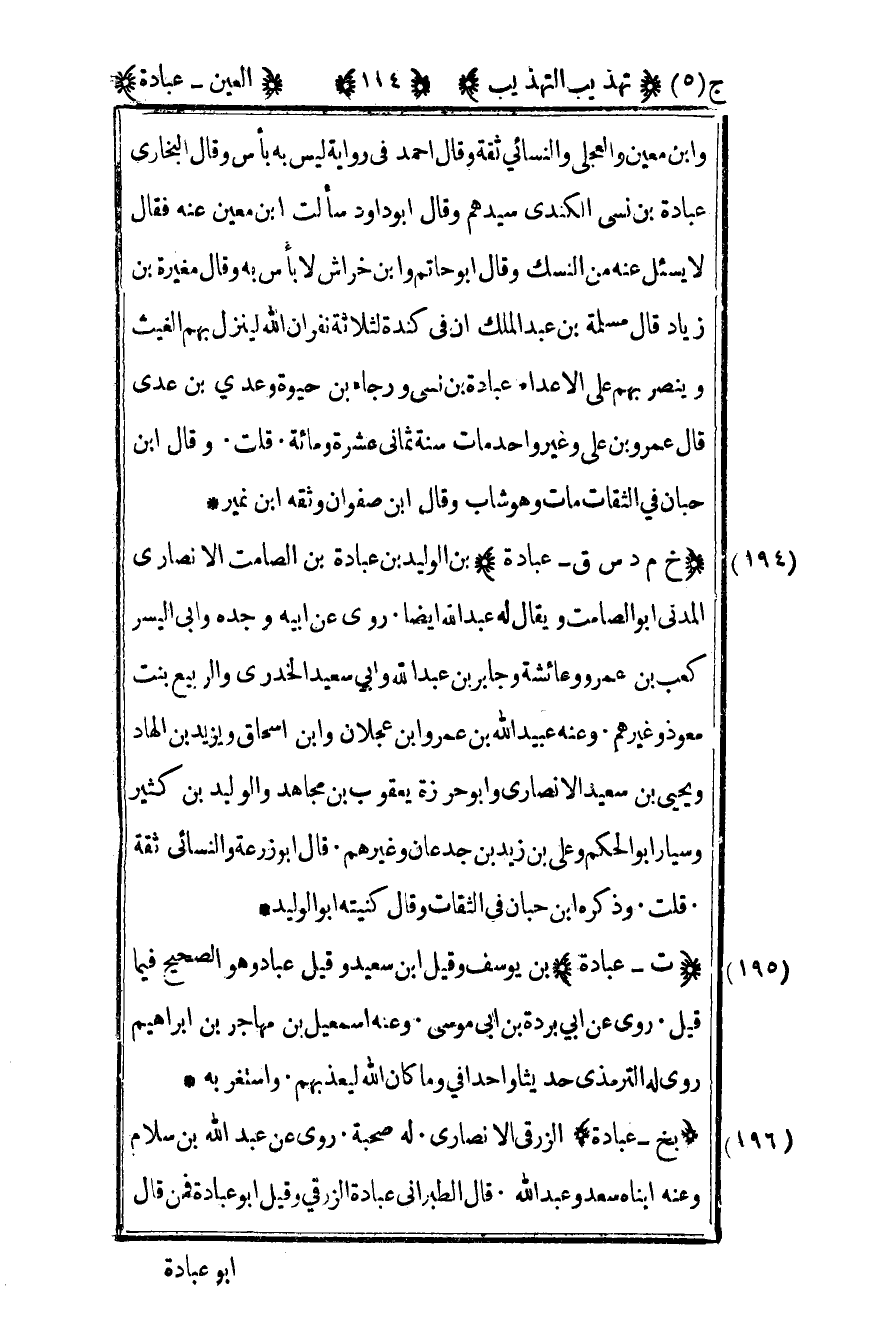 ج(٥) ﴿ تهذيب التهذيب ﴾ ﴿ ١١٤ ﴾ ﴿ العين - عبادة ﴾
وابن معين والعجلى والنسائي ثقة وقال احمد فى رواية ليس به بأس وقال البخارى
عبادة بن نسى الكندى سيدهم وقال ابو داود سألت ابن معين عنه فقال
لا يسئل عنه من النسك وقال ابو حاتم وابن خراش لا بأس به وقال مغيرة بن
زياد قال مسلمة بن عبد الملك ان فى كندة لثلاثة نفر ان الله لينزل بهم الغيث
و ينصر بهم على الاعداء عبادة بن نسى و رجاء بن حيوة وعدي بن عدى
قال عمرو بن على وغير واحد مات سنة ثمانى عشرة ومائة ٠ قلت ٠ و قال ابن
حبان في الثقات مات وهو شاب وقال ابن صفوان وثقه ابن نمير *
(١٩٤) ﴿ خ م د س ق - عبادة ﴾ بن الوليد بن عبادة بن الصامت الانصارى
المدنى ابو الصامت و يقال له عبد الله ايضا ٠ روى عن ابيه و جده وابى اليسر
كعب بن عمرو وعائشة وجابر بن عبد الله وابي سعيد الخدرى والربيع بنت
معوذ وغيرهم ٠ وعنه عبيد الله بن عمر وابن عجلان وابن اسحاق ويزيد بن الهاد
ويحيى بن سعيد الانصارى وابو حرزة يعقوب بن مجاهد والوليد بن كثير
وسيار ابو الحكم وعلى بن زيد بن جدعان وغيرهم ٠ قال ابو زرعة والنسائى ثقة
٠ قلت ٠ وذكره ابن حبان في الثقات وقال كنيته ابو الوليد *
(١٩٥) ﴿ ت - عبادة ﴾ بن يوسف وقيل ابن سعيد و قيل عباد وهو الصحيح فيما
قيل ٠ روى عن ابي بردة بن ابى موسى ٠ وعنه اسمعيل بن مهاجر بن ابراهيم
روى له الترمذى حديثا واحدا في وما كان الله ليعذبهم ٠ واستغر به *
(١٩٦) ﴿ بخ - عبادة ﴾ الزرقى الانصارى ٠ له صحبة ٠ روى عن عبد الله بن سلام
وعنه ابناه سعد وعبد الله ٠ قال الطبرانى عبادة الزرقي وقيل ابو عبادة فمن قال
ابو عبادة